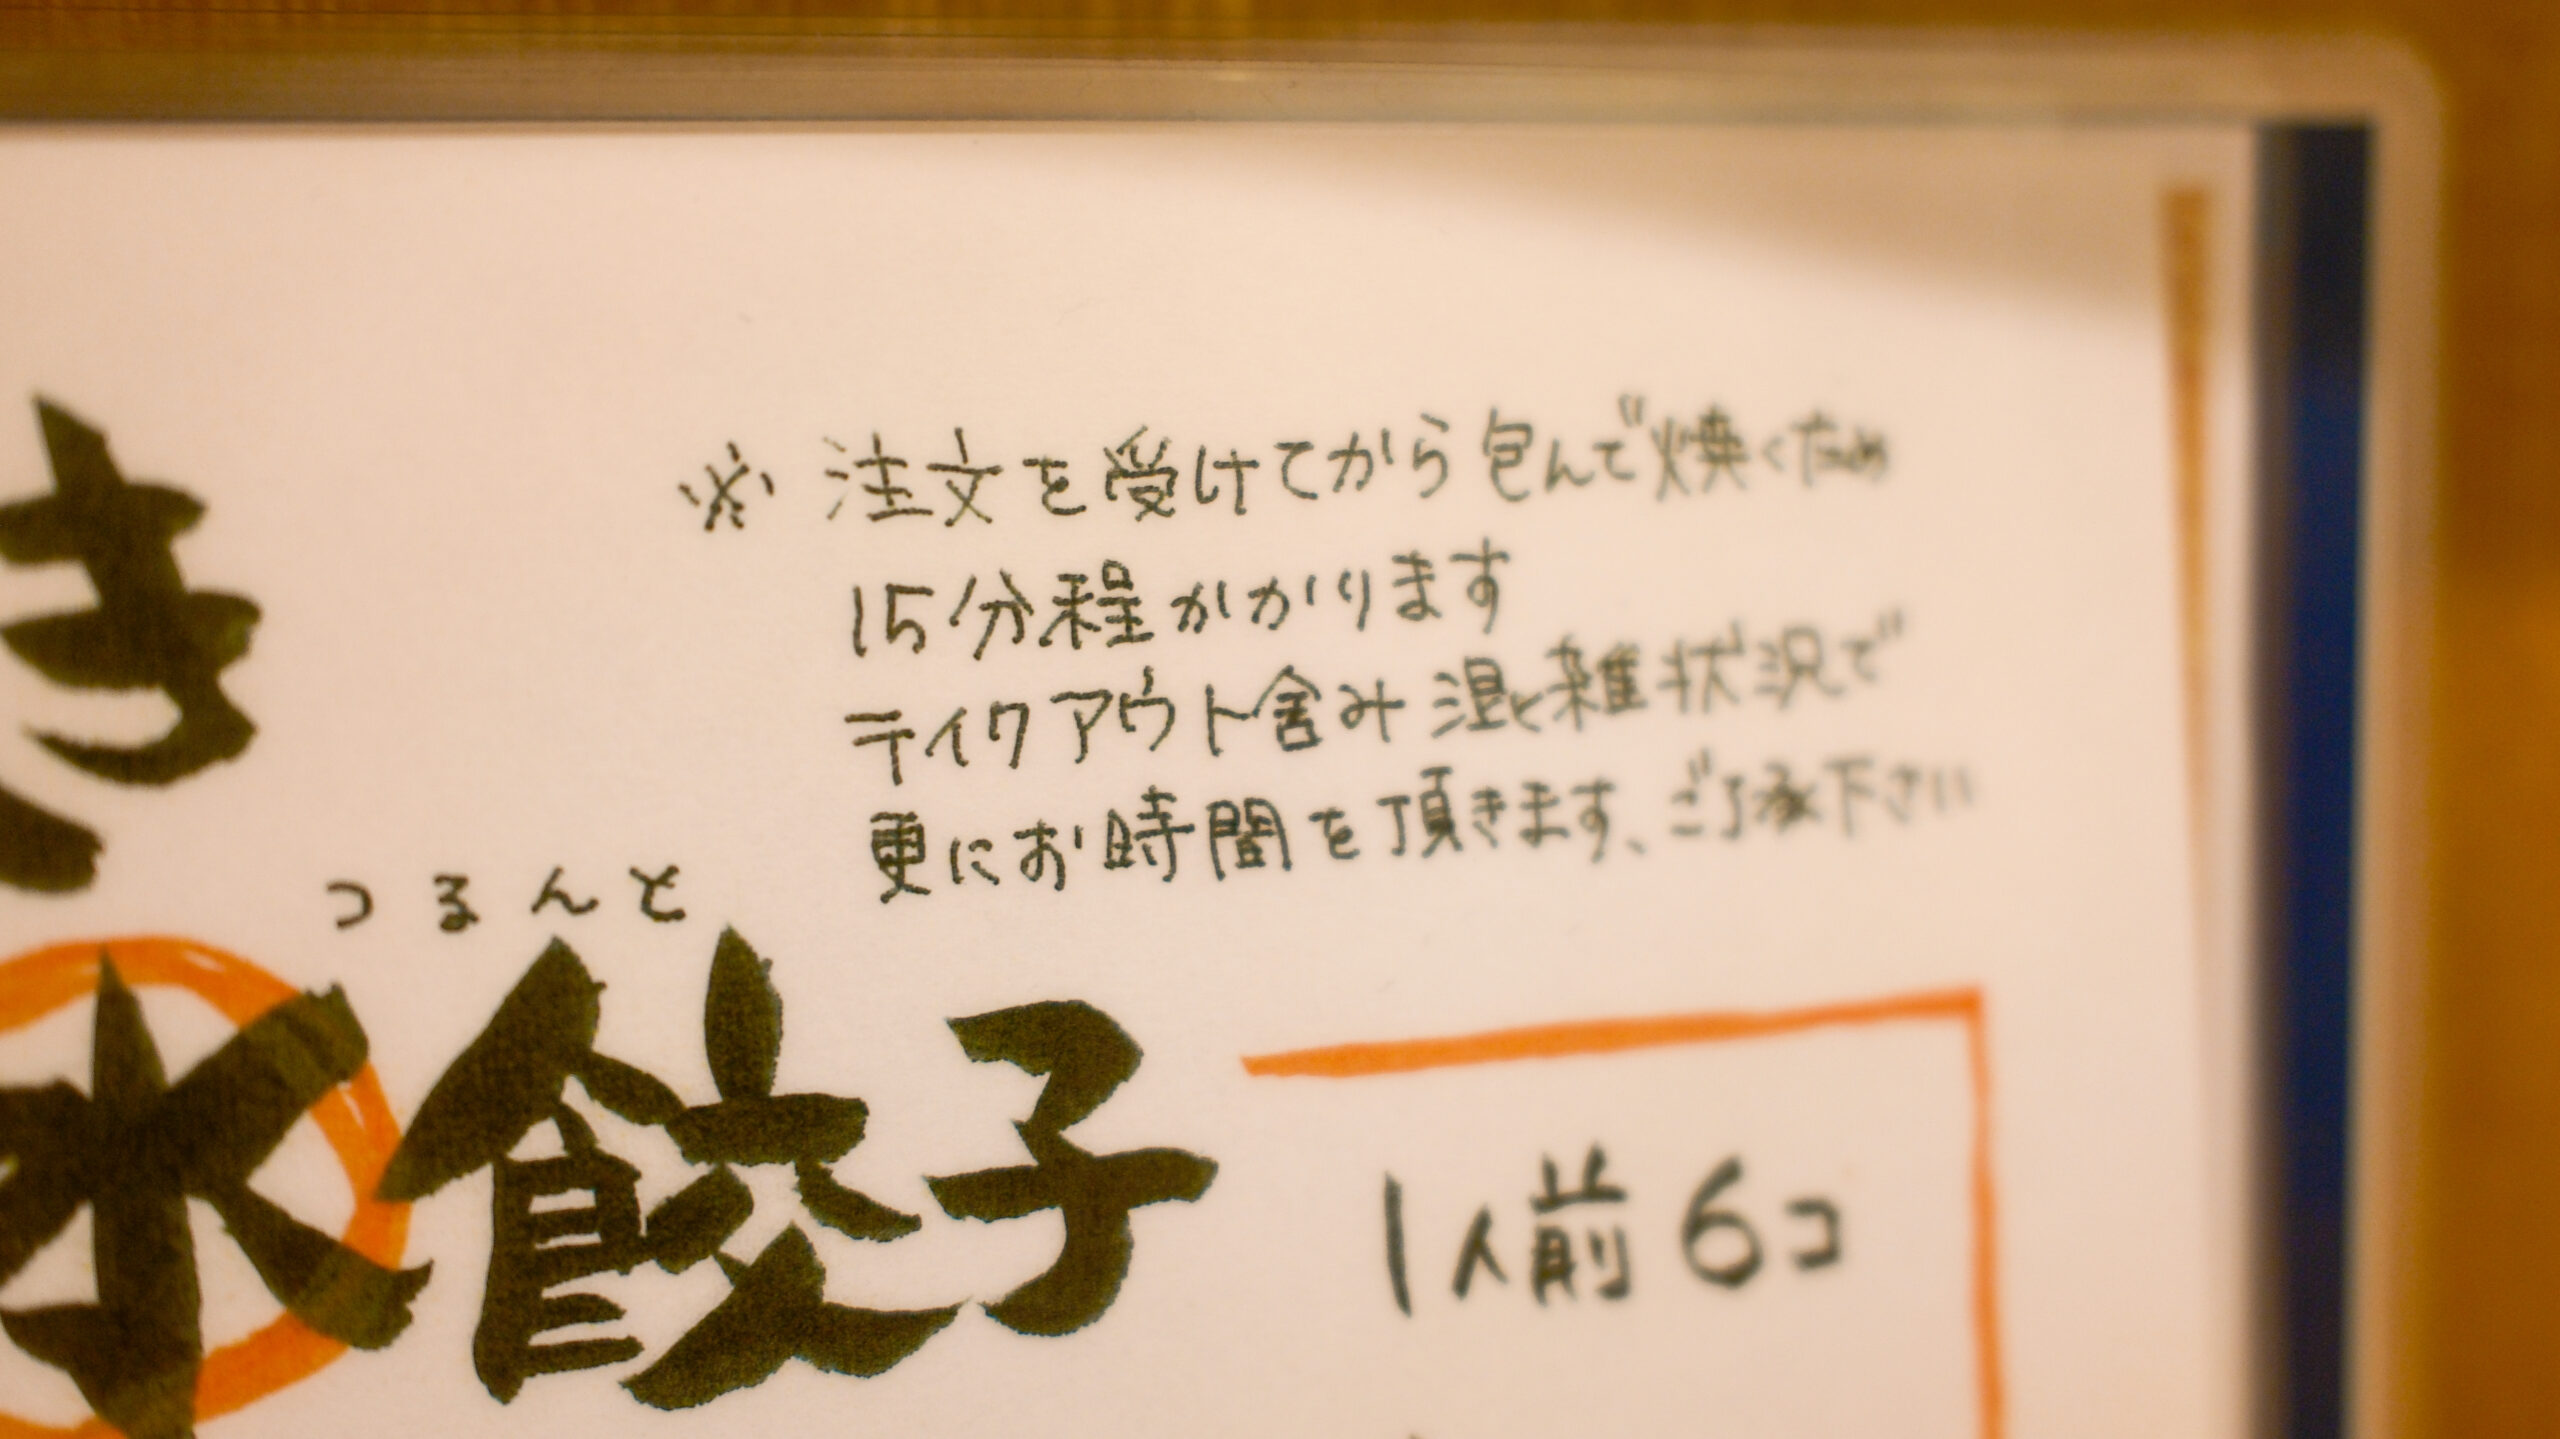 き
※ 注文を受けてから包んで焼くため
15分程かかります
テイクアウト含み混と雑状況で
更にお時間を頂きます、ご了承下さい
つるんと
水餃子
1人前6コ